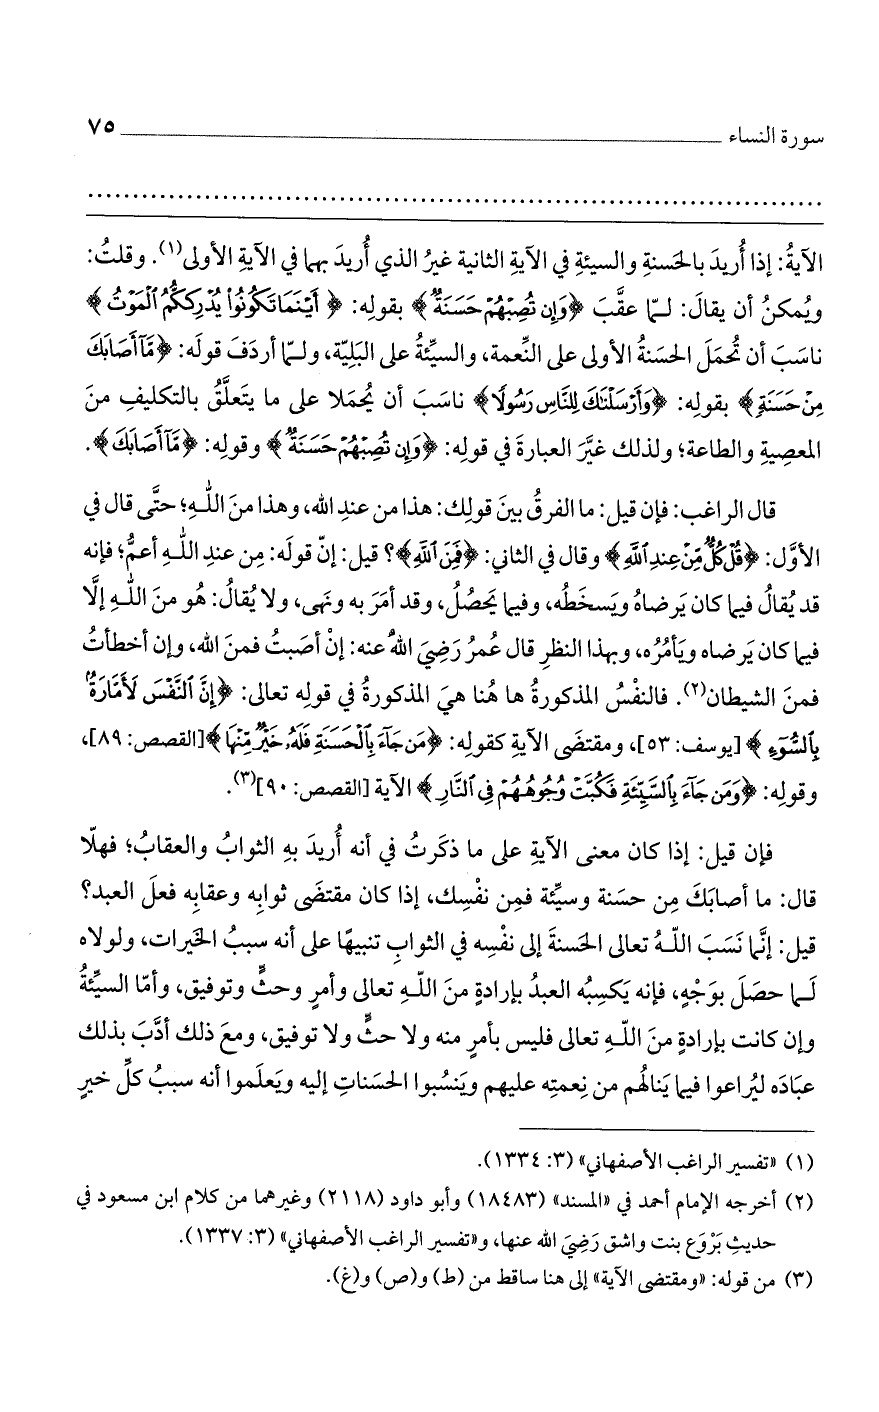 سورة النساء ٧٥
الآيةُ: إذا أُريدَ بالحَسنةِ والسيئةِ في الآيةِ الثانية غيرُ الذي أُريدَ بهما في الآيةِ الأولى(١). وقلتُ:
ويُمكنُ أن يقالَ: لـمّا عقَّبَ ﴿وَإِن تُصِبْهُمْ حَسَنَةٌ﴾ بقولِه: ﴿أَيْنَمَا تَكُونُوا۟ يُدْرِككُّمُ ٱلْمَوْتُ﴾
ناسَبَ أن تُحمَلَ الحسَنةُ الأولى على النِّعمة، والسيِّئةُ على البَليّة، ولـمّا أردَفَ قولَه: ﴿مَّآ أَصَابَكَ
مِنْ حَسَنَةٍ﴾ بقولِه: ﴿وَأَرْسَلْنَٰكَ لِلنَّاسِ رَسُولًا﴾ ناسَبَ أن يُحمَلا على ما يتَعلَّقُ بالتكليفِ منَ
المعصيةِ والطاعة؛ ولذلك غيَّرَ العبارةَ في قولِه: ﴿وَإِن تُصِبْهُمْ حَسَنَةٌ﴾ وقولِه: ﴿مَّآ أَصَابَكَ﴾.
قال الراغب: فإن قيل: ما الفرقُ بينَ قولِك: هذا من عندِ الله، وهذا منَ اللـهِ؛ حتَّى قال في
الأوَّل: ﴿قُلْ كُلٌّ مِّنْ عِندِ ٱللَّهِ﴾ وقال في الثاني: ﴿فَمِنَ ٱللَّهِ﴾؟ قيل: إنّ قولَه: مِن عندِ اللـهِ أعمُّ؛ فإنه
قد يُقالُ فيما كان يَرضاهُ ويَسخَطُه، وفيما يَحصُلُ، وقد أمَرَ به ونَهى، ولا يُقالُ: هُو منَ اللـهِ إلَّا
فيما كان يَرضاه ويَأمُرُه، وبهذا النظرِ قال عُمرُ رَضِيَ اللهُ عنه: إنْ أصَبتُ فمنَ الله، وإن أخطأتُ
فمنَ الشيطان(٢). فالنفْسُ المذكورةُ ها هُنا هيَ المذكورةُ في قولِه تعالى: ﴿إِنَّ ٱلنَّفْسَ لَأَمَّارَةٌۢ
بِٱلسُّوٓءِ﴾ [يوسف: ٥٣]، ومقتضَى الآيةِ كقولِه: ﴿مَن جَآءَ بِٱلْحَسَنَةِ فَلَهُۥ خَيْرٌ مِّنْهَا﴾ [القصص: ٨٩]،
وقولِه: ﴿وَمَن جَآءَ بِٱلسَّيِّئَةِ فَكُبَّتْ وُجُوهُهُمْ فِى ٱلنَّارِ﴾ الآية [القصص: ٩٠](٣).
فإن قيل: إذا كان معنى الآيةِ على ما ذكَرتُ في أنه أُريدَ بهِ الثوابُ والعقابُ؛ فهلّا
قال: ما أصابَكَ مِن حسَنة وسيِّئة فمِن نفْسِك، إذا كان مقتضَى ثوابِه وعقابِه فعلَ العبد؟
قيل: إنَّما نَسَبَ اللـهُ تعالى الحَسنةَ إلى نفْسِه في الثوابِ تنبيهًا على أنه سببُ الخَيرات، ولولاه
لَـما حصَلَ بوَجْهٍ، فإنه يَكسِبُه العبدُ بإرادةٍ منَ اللـهِ تعالى وأمرٍ وحثٍّ وتوفيق، وأمّا السيِّئةُ
وإن كانت بإرادةٍ منَ اللـهِ تعالى فليس بأمرٍ منه ولا حثٍّ ولا توفيق، ومعَ ذلك أدَّبَ بذلك
عبَادَه ليُراعوا فيما يَنالُهم من نِعمتِه عليهم ويَنسُبوا الحَسَناتِ إليه ويَعلَموا أنه سببُ كلِّ خيرٍ
(١) «تفسير الراغب الأصفهاني» (٣: ١٣٣٤).
(٢) أخرجه الإمام أحمد في «المسند» (١٨٤٨٣) وأبو داود (٢١١٨) وغيرهما من كلام ابن مسعود في
حديثِ بَرْوَع بنت واشق رَضِيَ الله عنها، و«تفسير الراغب الأصفهاني» (٣: ١٣٣٧).
(٣) من قوله: «ومقتضى الآية» إلى هنا ساقط من (ط) و(ص) و(غ).